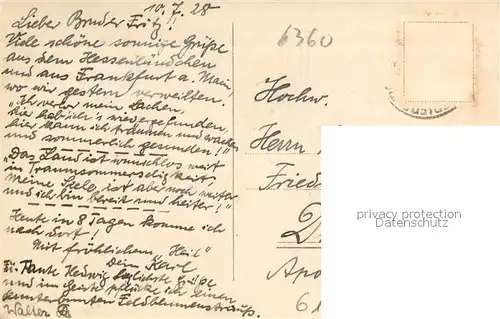 10. 7. 28
Lieber Bruder Fritz!!
Viele schöne sonnige Grüße
aus dem Hessenländchen
und aus Frankfurt a. Main,
wo wir gestern verweilten.
"Ich verlor mein Lachen,
hier hab ich's wiedergefunden,
hier kann ich träumen und wachen
und sommerlich gesunden!"
"Das Land ist wunschlos weit
in Traumsommerseligkeit,
meine Seele ist aber noch weiter
und ich bin bereit und heiter!"
Heute in 8 Tagen komme ich
nach dort!
Mit fröhlichem "Heil"
Dein Karl
Tante Hedwig herzlichste Grüße
und im Geiste pflücke ich einen
kunterbunten Feldblumenstrauß.
Walter
6360
Hochw.
Herrn
Fried
D
Apo
61
privacy protection
Datenschutz